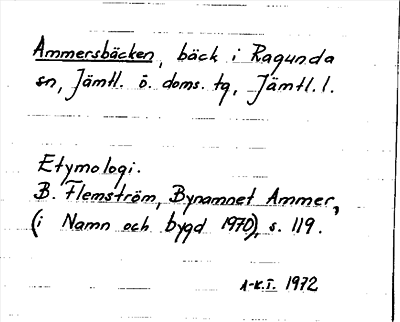 Ammersbäcken, bäck i Ragunda
sn, Jämtl. ö. doms. tg, Jämtl. l.
Etymologi.
B. Flemström, Bynamnet Ammer,
(i Namn och bygd 1970), s. 119.
A-K.I. 1972